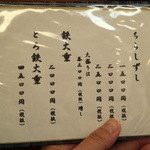 ちらしずし
一五〇〇円(税抜)
二〇〇〇円(税抜)
二五〇〇円(税抜)
大盛りは
各五〇〇円(税抜)増し
鉄火重
二〇〇〇円(税抜)
とろ鉄火重
四五〇〇円(税抜)